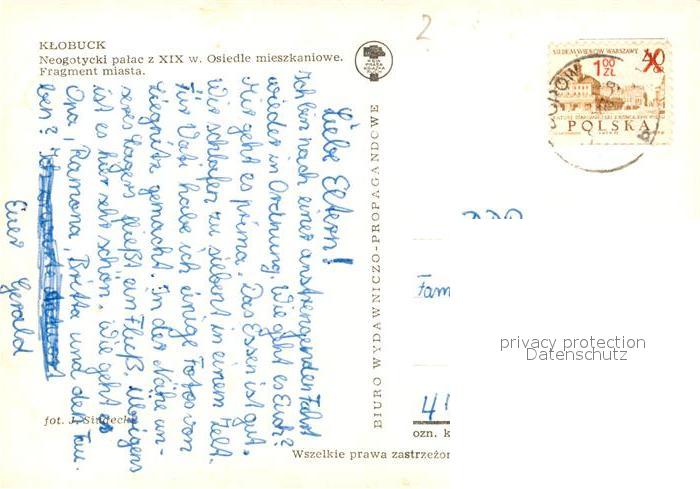 KŁOBUCK
Neogotycki pałac z XIX w. Osiedle mieszkaniowe.
Fragment miasta.
Liebe Eltern!
Ich bin nach einer anstrengenden Fahrt
wieder in Ordnung. Wie geht es Euch?
Mir geht es prima. Das Essen ist gut.
Wir schlafen zu siebent in einem Zelt.
Für Vati habe ich einige Fotos von
Liegnitz gemacht. In der Nähe un-
seres Lagers fließt ein Fluß. Übrigens
ist es hier sehr schön. Wie geht es
Opa, Ramona, Britta und den Tau-
ben? Ich
Euer
Gerald
fot. J.
BIURO WYDAWNICZO-PROPAGANDOWE
2
SIEDEM WIEKÓW WARSZAWY
40
1,00
ZŁ
POLSKA
DDR
Fam
privacy protection
Datenschutz
ozn. k
Wszelkie prawa zastrzeżon